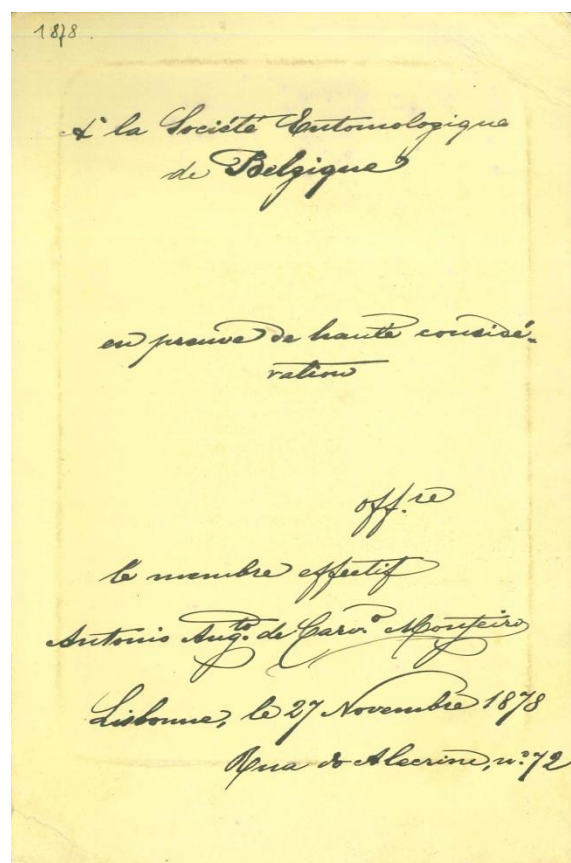 1878.
A la Société Entomologique
de Belgique
en preuve de haute considé-
ration
off.re
le membre effectif
Antonio Aug.to de Carv.o Monteiro
Lisbonne, le 27 Novembre 1878
Rua do Alecrim, n.o 72